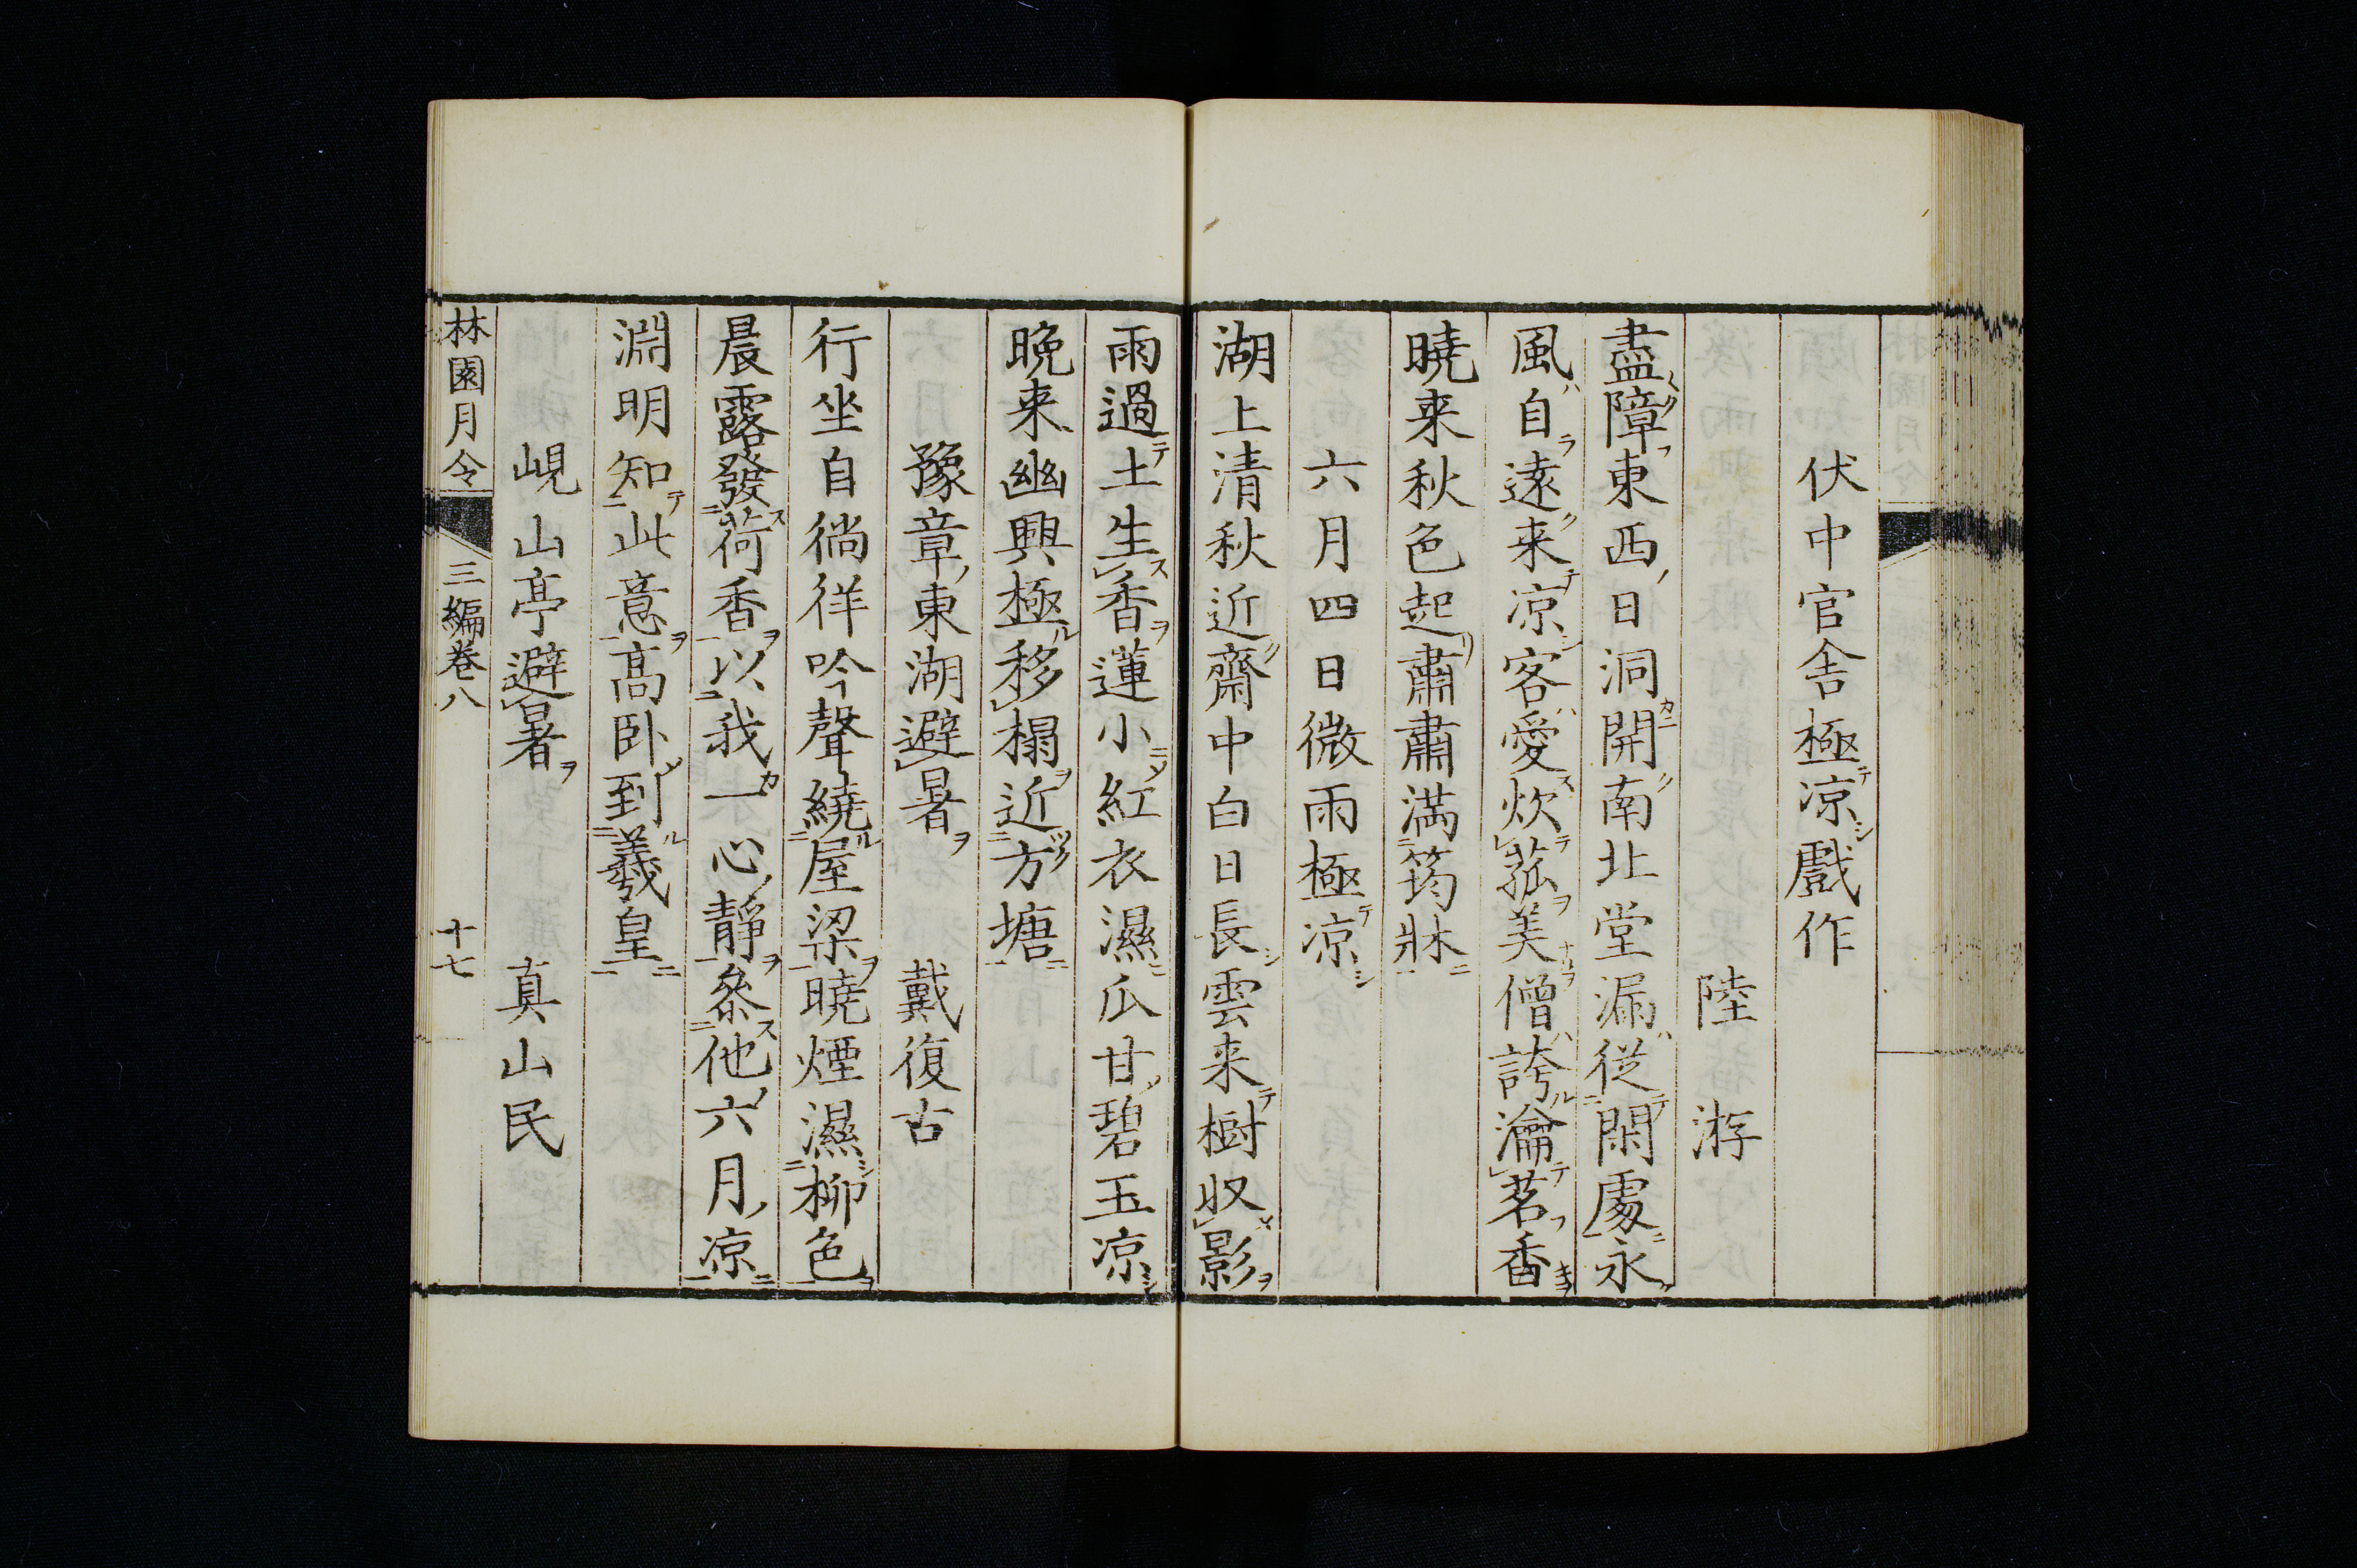 伏中官舎極凉戲作
陸游
盡障東西日洞開南北堂漏從閑處永
風自遠来凉客愛炊菰美僧誇瀹茗香
曉来秋色起肅肅滿筠牀
六月四日微雨極凉
湖上清秋近齋中白日長雲来樹収影
雨過土生香蓮小紅衣濕瓜甘碧玉凉
晚来幽興極移榻近方塘
豫章東湖避暑　戴復古
行坐自徜徉吟聲繞屋梁曉煙濕柳色
晨露發荷香以我一心靜參他六月凉
淵明知此意高卧到羲皇
峴山亭避暑　真山民
林園月令　三編卷八　十七